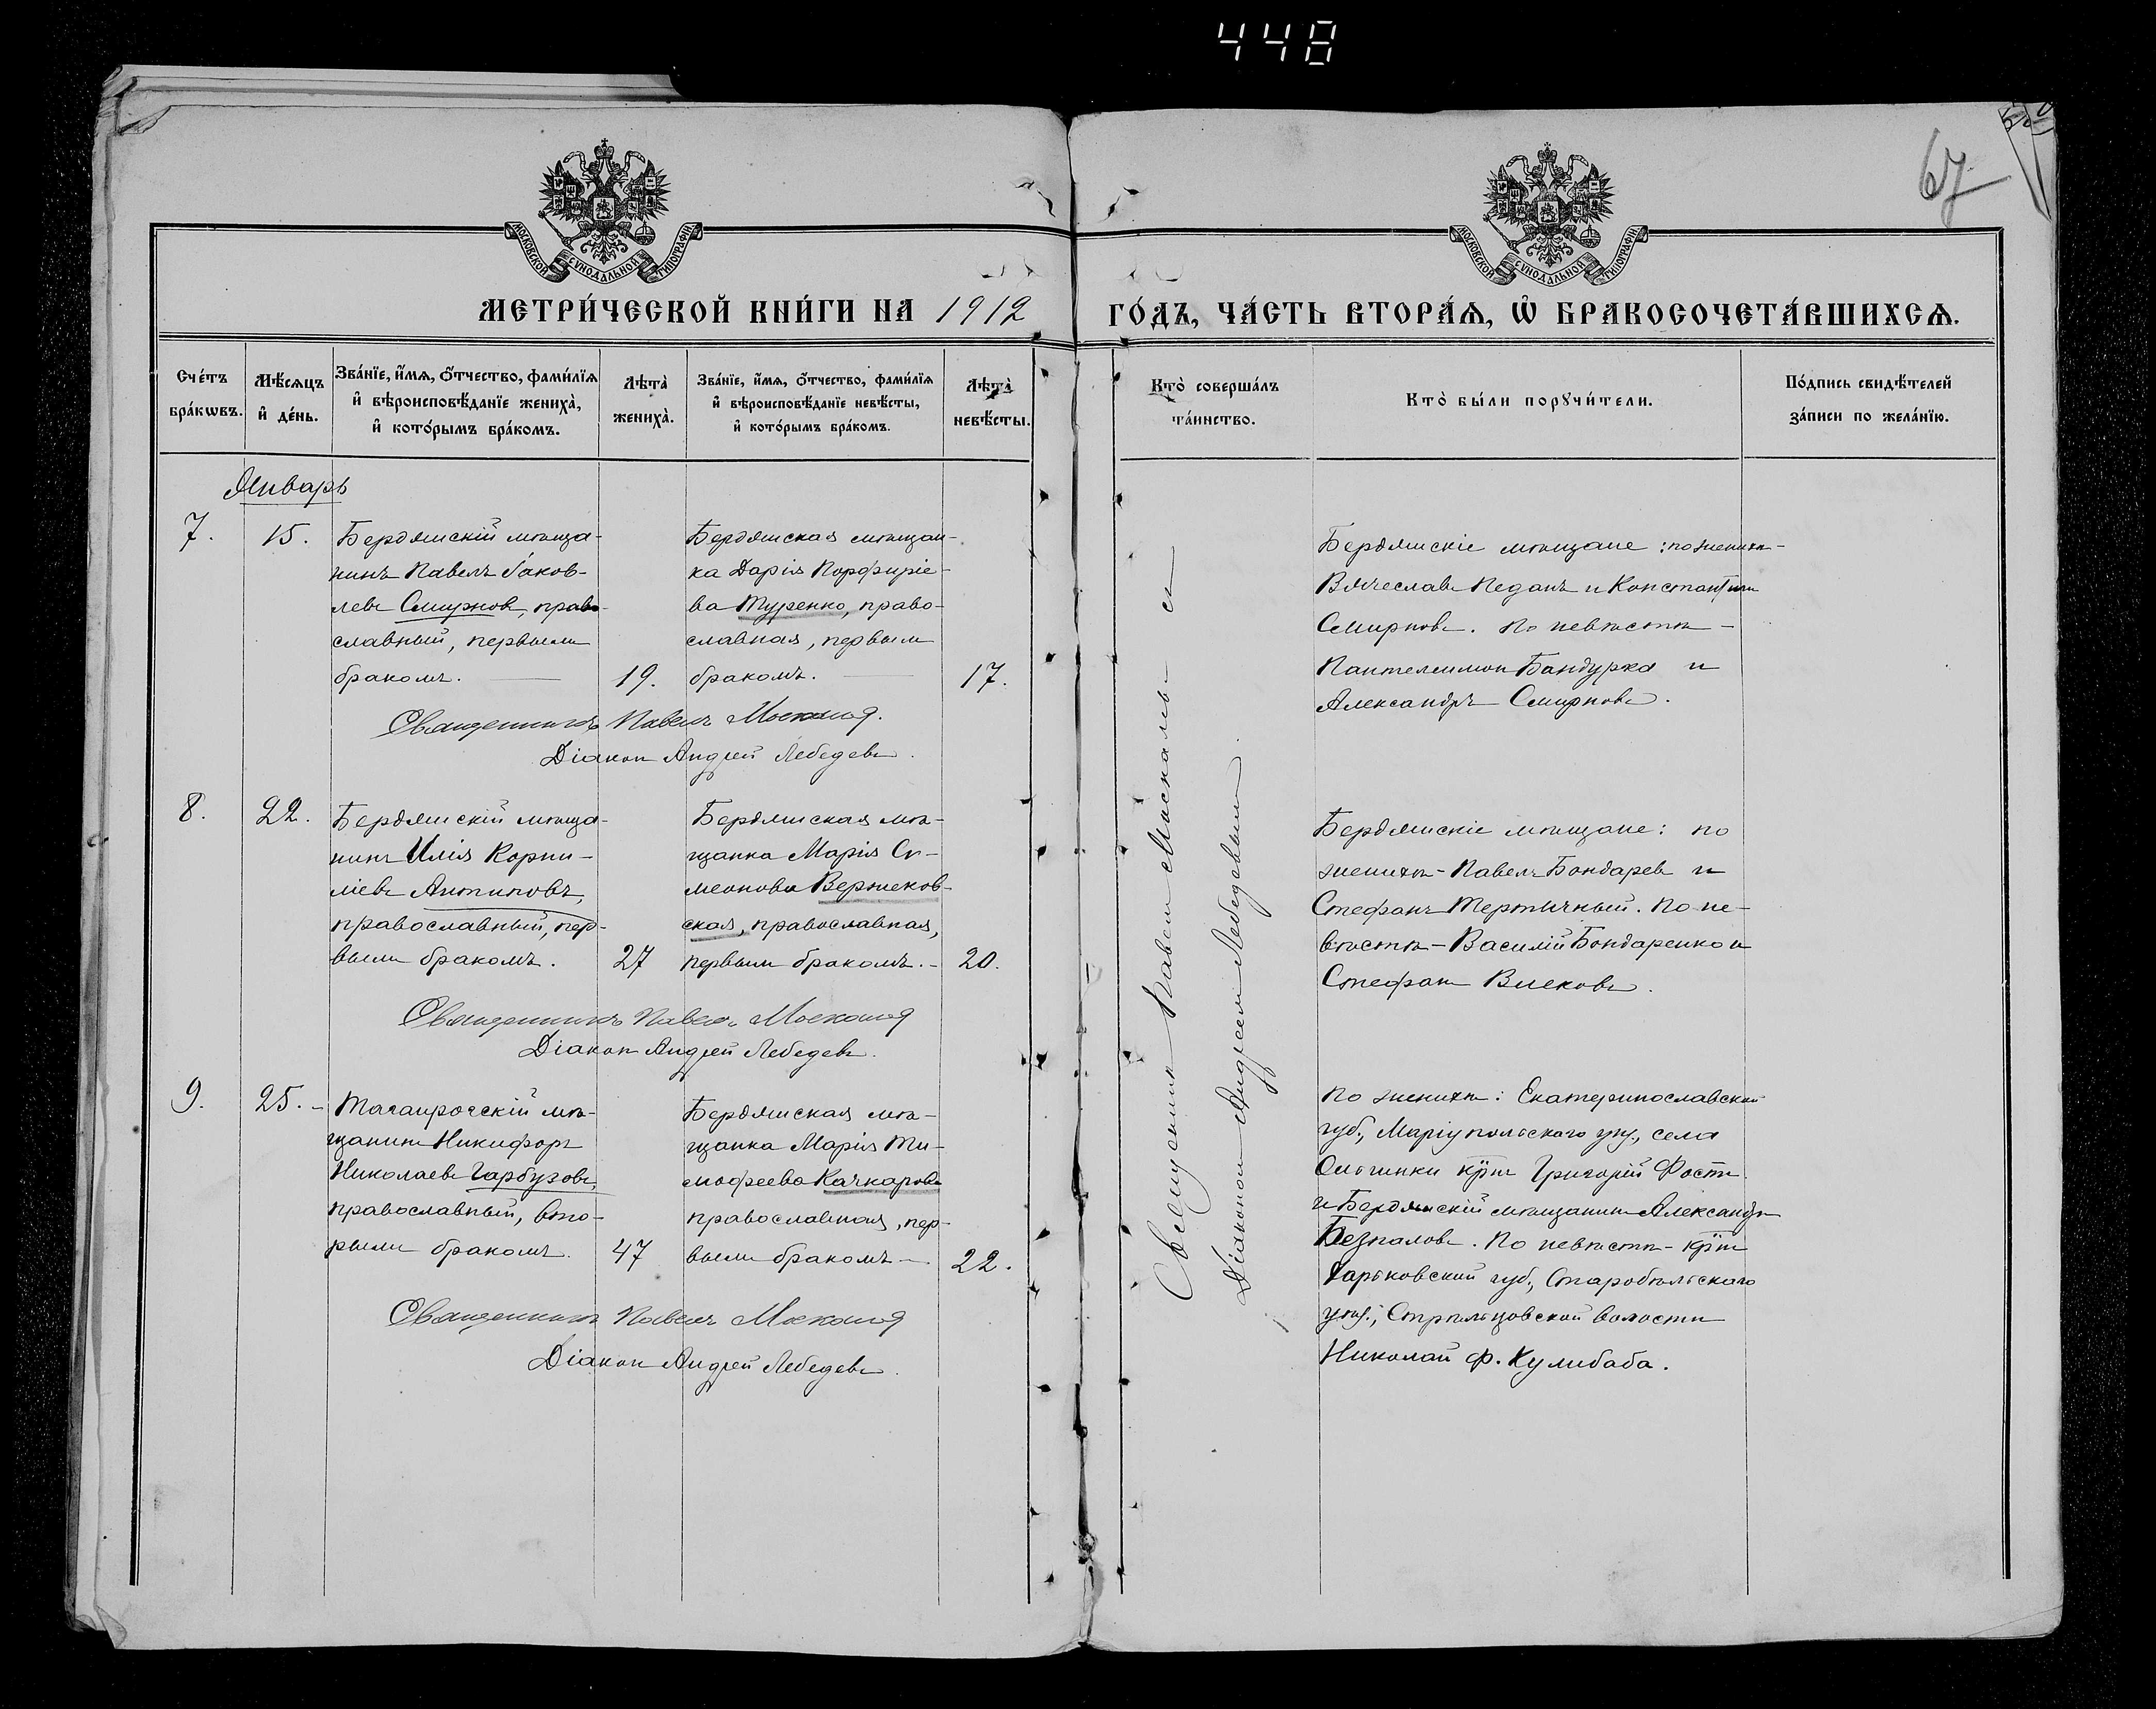 448
67
МОСКОВСКОЙ СѴНОДАЛЬНОЙ ТИПОГРАФІИ
МОСКОВСКОЙ СѴНОДАЛЬНОЙ ТИПОГРАФІИ
МЕТРИ́ЧЕСКОЙ КНИ́ГИ НА 1912
ГО́ДЪ, ЧА́СТЬ ВТОРА́Ѧ, Ѽ БРАКОСОЧЕТА́ВШИХСѦ.
Сче́тъ бра́кѡвъ.
Мѣ́сяцъ и҆ де́нь.
Зва́нїе, и҆́мѧ, ѻ҆́тчество, фами́лїѧ
и҆ вѣроисповѣ́данїе жениха̀,
и҆ кото́рымъ бра́комъ.
Лѣта̀ жениха̀.
Зва́нїе, и҆́мѧ, ѻ҆́тчество, фами́лїѧ
и҆ вѣроисповѣ́данїе невѣ́сты,
и҆ кото́рымъ бра́комъ.
Лѣта̀ невѣ́сты.
Кто̀ соверша́лъ
та́инство.
Кто̀ бы́ли порꙋчи́тели.
По́дпись свидѣ́телей
за́писи по жела́нїю.
Январь
7.
15.
Бердянскій мѣща-
нинъ Павелъ Іаков-
левъ Смирновъ, право-
славный, первымъ
бракомъ.
19.
Бердянская мѣщан-
ка Дарія Порфиріе-
ва Туренко, право-
славная, первымъ
бракомъ.
17.
Священникъ Павелъ Москалевъ
Діаконъ Андрей Лебедевъ.
Бердянскіе мѣщане: по женихѣ-
Вячеславъ Педанъ и Константинъ
Смирновъ. По невѣстѣ -
Пантелеимон Бандурка и
Александръ Смирновъ.
8.
22.
Бердянскій мѣща-
нинъ Илія Корни-
ліевъ Антиповъ,
православный, пер-
вымъ бракомъ.
27
Бердянская мѣ-
щанка Марія Си-
меонова Вержеков-
ская, православная,
первымъ бракомъ. -
20.
Священникъ Павелъ
Діаконъ Андрей Лебедевъ.
Бердянскіе мѣщане: по
женихѣ - Павелъ Бондаревъ и
Стефанъ Тертычный. По не-
вѣстѣ - Василій Бондаренко и
Стефанъ
9.
25. -
Таганрогскій мѣ-
щанинъ Никифоръ
Николаевъ Гарбузовъ,
православный, вто-
рымъ бракомъ.
47
Бердянская мѣ-
щанка Марія Ти-
мофеева Качкарова
православная, пер-
вымъ бракомъ -
22.
Священникъ Павелъ
Діаконъ Андрей Лебедевъ.
По женихѣ: Екатеринославской
губ., Маріупольскаго уѣз., села
крн Григорій
и Бердянскій мѣщанинъ Александръ
Безпаловъ. По невѣстѣ - крн
Харьковской губ., Старобѣльскаго
уѣз., Стрѣльцовской волости
Николай Ф. Кулибаба.
Священникъ Павелъ и
Діакономъ Андреемъ Лебедевымъ.